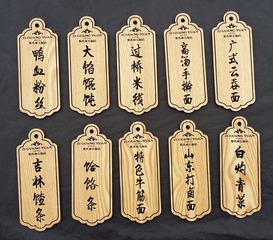 鸭血粉丝
大馅馄饨
过桥米线
高汤手擀面
广式云吞面
吉林馇条
饸饹条
特色牛筋面
山东打卤面
白灼青菜